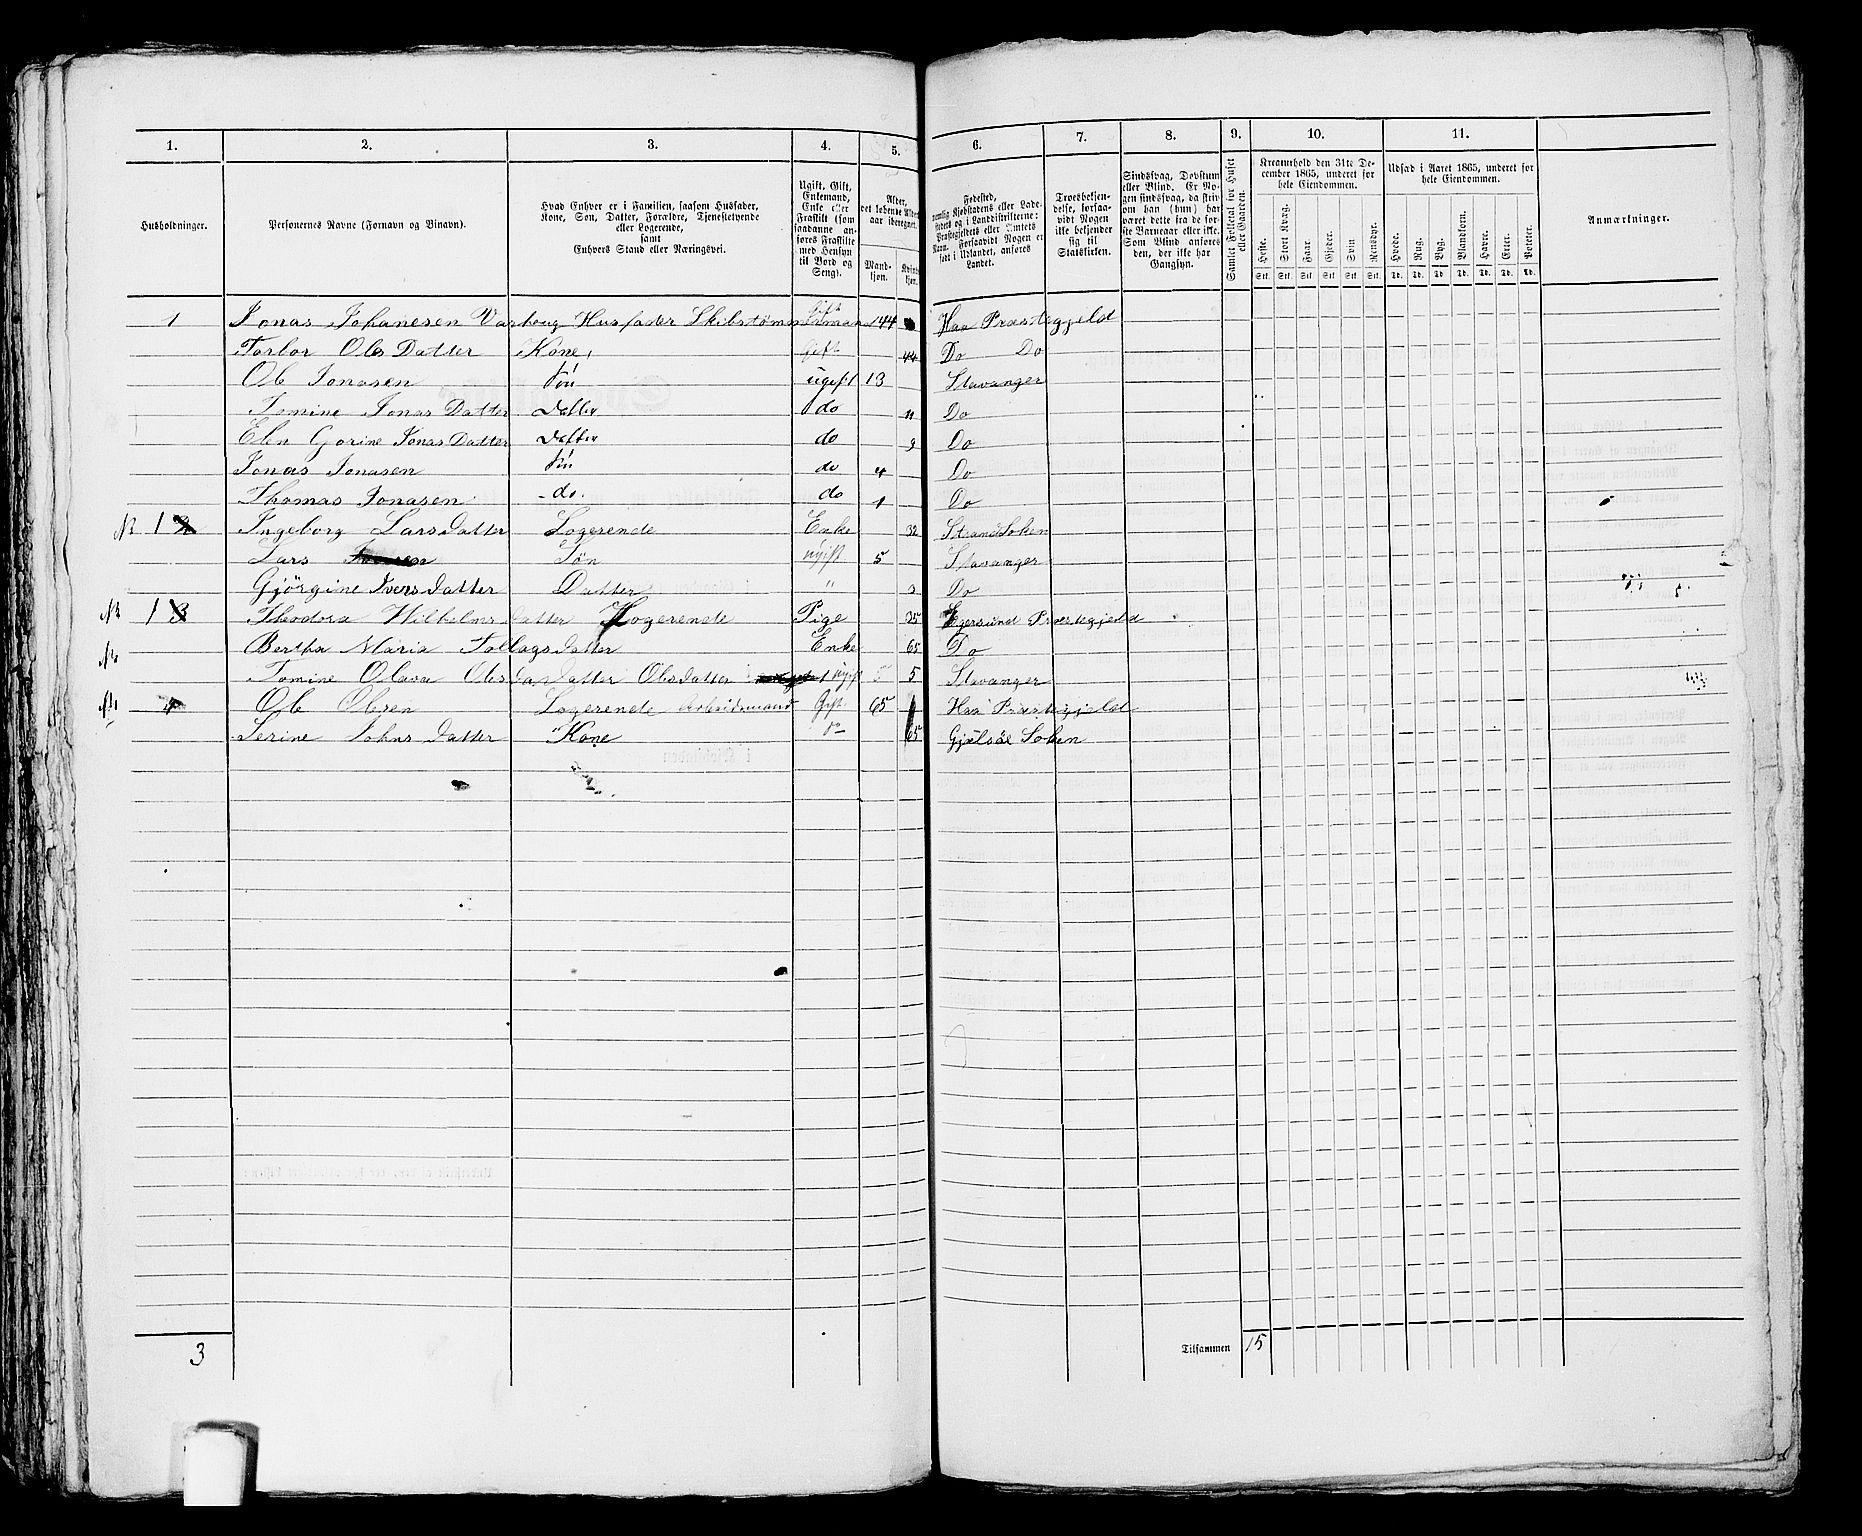 1. 2. 3. 4. 5. 6. 7. 8. 9. 10. 11.
Husholdninger.
Personernes Navne (Fornavn og Tilnavn).
Hvad Enhver er i Familien, saasom Husfader, Kone, Søn, Datter, Forældre, Tjenestetyende eller Logerende, samt Enhvers Stand eller Næringsvei.
Ugift, Gift, Enkemand, Enke eller Fraskilt (som saadanne anføres Fraskilte med Hensyn til Bord og Seng).
Alder, det løbende Alders-aar iberegnet.
Mand-kjøn. Kvinde-kjøn.
Fødested, nemlig Kjøbstadens eller Ladestedets og i Landdistrikterne: Præstegjeldets eller Amtets Navn. Forsaavidt Nogen er født i Udlandet, anføres Landet.
Troesbekjendelse, forsaavidt Nogen ikke bekjender sig til Statskirken.
Sindssvag, Døvstum eller Blind. Er Nogen sindssvag, da skriv om han (hun) har været dette fra de første Barneaar eller ikke. Som Blind anføres den, der ikke har Gangsyn.
Samlet Folketal for Huset eller Gaarden.
Kreaturhold den 31te December 1865, underet for hele Eiendommen.
Heste. Stort Kvæg. Faar. Gjeder. Svin. Rensdyr.
Stk. Stk. Stk. Stk. Stk. Stk.
Udsæd i Aaret 1865, underet for hele Eiendommen.
Hvede. Rug. Byg. Blandkorn. Havre. Erter. Poteter.
Td. Td. Td. Td. Td. Td. Td.
Anmærkninger.
1 Jonas Johanesen Varhoug Husfader Gift 44 Haa Præstegjeld
Torbor Ols Datter Kone Gift 44 Do Do
Ole Jonasen Søn ugift 13 Stavanger
Tomine Jonas Datter Datter do 11 Do
Elen Gorine Jonas Datter Datter do 9 Do
Jonas Jonasen Søn do 4 Do
Thomas Jonasen do. do 1 Do
1 Ingeborg Larsdatter Logerende Enke 32 Strand Soken
Lars Søn ugift 5 Stavanger
Gjørgine Iversdatter Datter " 3 Do
1 Theodora Wilhelmsdatter Logerende Pige 35 Egersund Præstegjeld
Bertha Maria Tollagsdatter Enke 65 Do
Tomine Olava Olsdatter ugift 5 Stavanger
Ole Olsen Logerende Arbeidsmand Gift 65 Haa Præstegjeld
Serine Johns datter "Kone do 65 Soken
3 Tilsammen 15